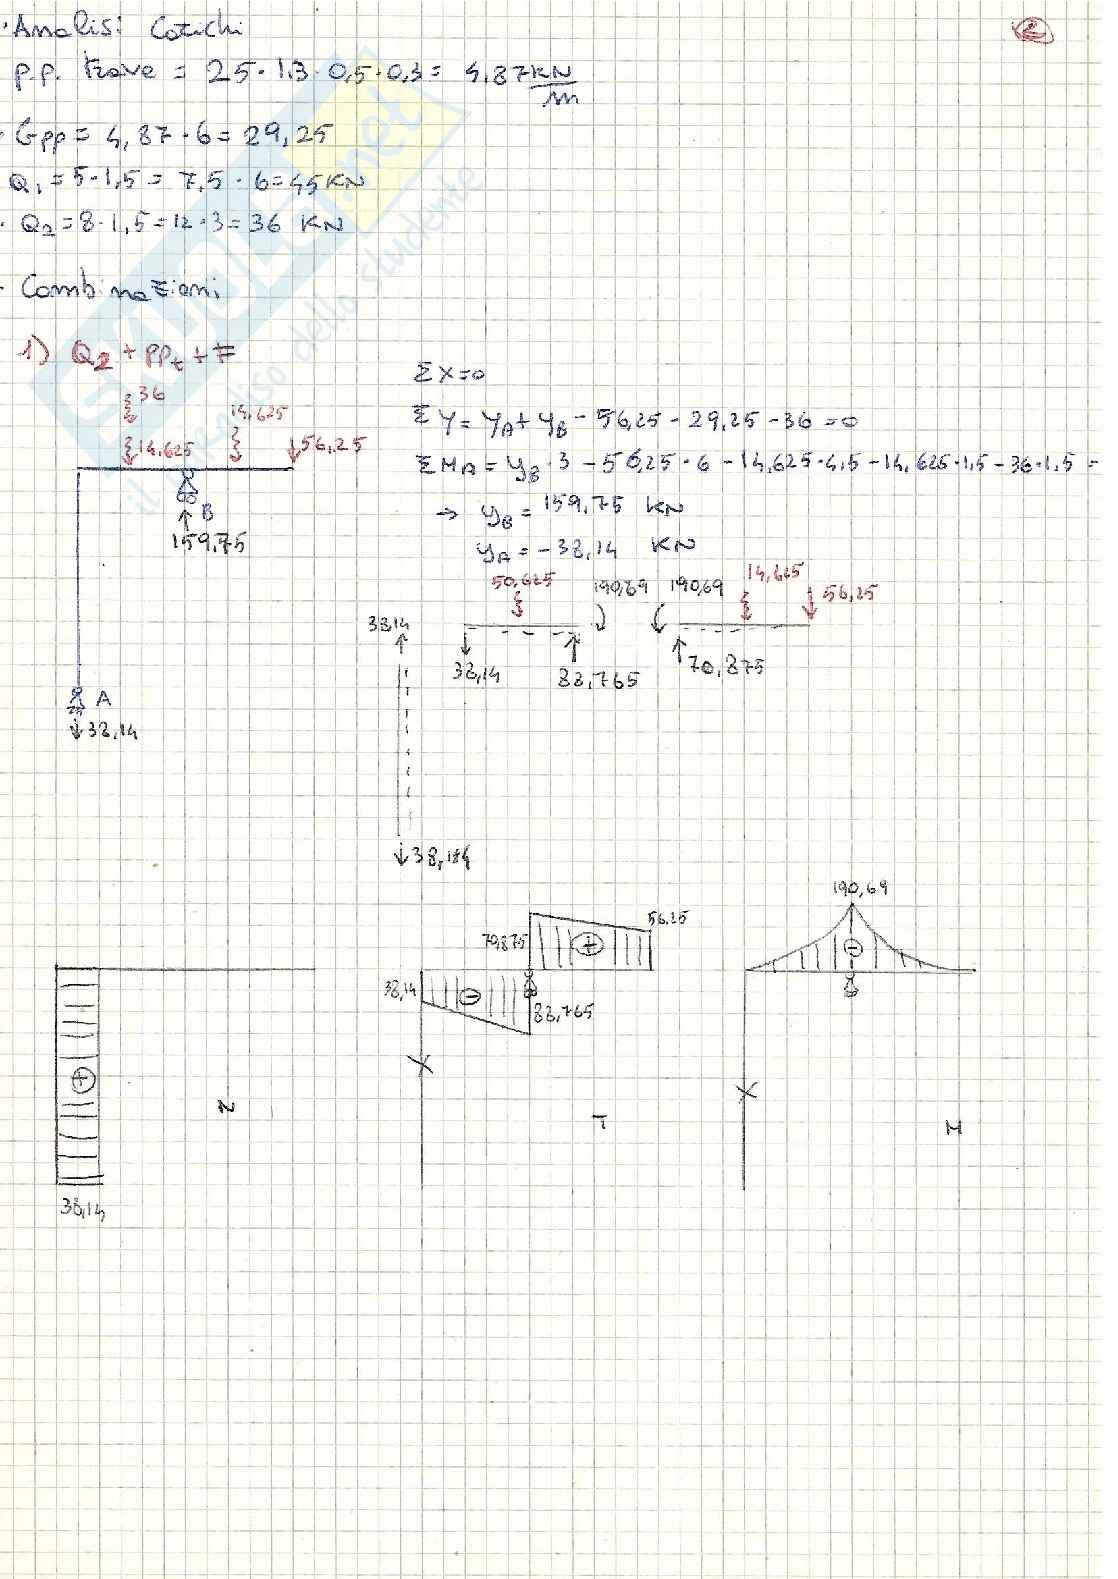 2
· Analisi Carichi
p.p. trave = 25 · 1,3 · 0,5 · 0,3 = 4,87 KN/m
· Gpp = 4,87 · 6 = 29,25
Q1 = 5 · 1,5 = 7,5 · 6 = 45 KN
· Q2 = 8 · 1,5 = 12 · 3 = 36 KN
· Combinazioni
1) Q2 + PPt + F
36
14,625
14,625
56,25
B
159,75
A
38,14
ΣX=0
ΣY= YA + YB - 56,25 - 29,25 - 36 = 0
ΣMA = YB · 3 - 56,25 · 6 - 14,625 · 4,5 - 14,625 · 1,5 - 36 · 1,5 =
→ YB = 159,75 KN
YA = - 38,14 KN
50,625
190,69
190,69
14,625
56,25
38,14
38,14
88,765
70,875
38,14
190,69
56,25
70,875
38,14
88,765
+
-
-
+
N
T
M
38,14
SKUOLA.net
il paradiso dello studente